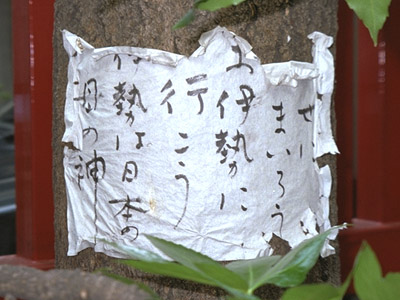 せー
まいろう
お伊勢に
行こう
伊勢は日本の
母の神